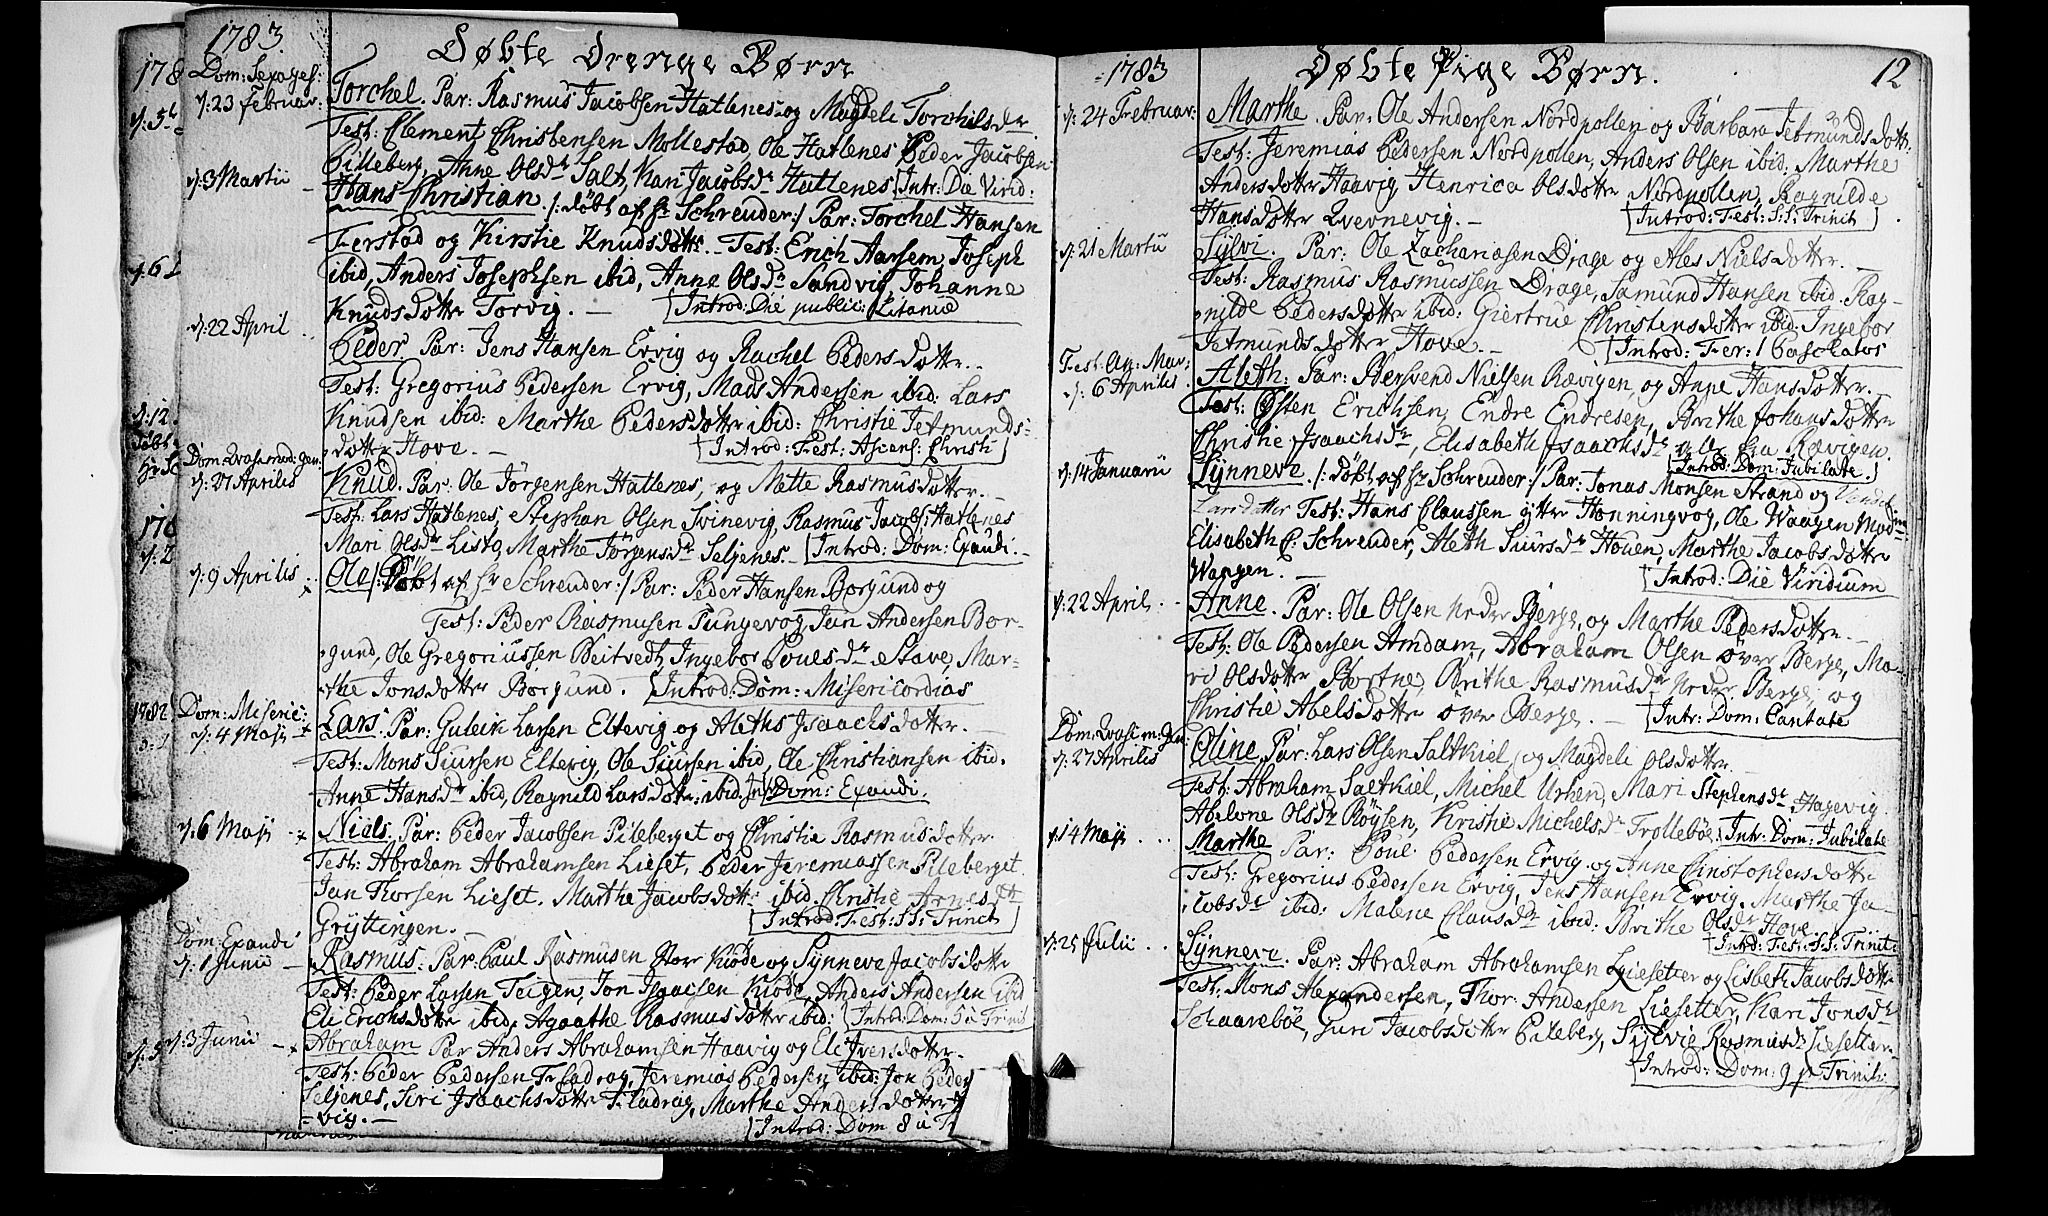 1783
Døbte Drenge Børn
Dom: Sexages:
d: 23 Februar:
Torchel. Par: Rasmus Jacobsen Hatlenes og Magdele Torchilsdr
Test: Clement Christensen Mollestad, Ole Hatlenes Peder Jacobsen
Pilleberg, Anne Olsdr Salt, Kari Jacobsdr Hatlenes [Intr: Die Virid:
d: 3 Martii
Hans Christian /: døbt af Hr Schreuder:/ Par: Torchel Hansen
Ferstad og Kirstie Knudsdotter. Test: Erich Aarsem, Joseph
ibid, Anders Josephsen ibid, Anne Olsdr Sandvig, Johanne
Knudsdotter Torvig. [Introd: Die public: Litaniæ
d: 22 April
Peder Par: Jens Hansen Ervig og Rachel Pedersdotter.
Test: Gregorius Pedersen Ervig, Mads Andersen ibid: Lars
Knudsen ibid: Marthe Pedersdotter ibid: Christie Jetmunds-
dotter Hove. [Introd: Fest: Ascens: Christi]
Dom: Qvasimod: gen:
d: 27 Aprilis
Knud. Par: Ole Jørgensen Hatlenes, og Mætte Rasmusdotter.
Test: Lars Hatlenes, Stephan Olsen Svinevig, Rasmus Jacobs: Hatlenes
Mari Olsdr Listø, Marthe Jørgensdr Seljenes. [Introd: Dom: Exaudi.
d: 9 Aprilis
Ole /: Døbt af Hr Schreuder:/ Par: Peder Hansen Borgund og
Test: Peder Rasmusen Pungevog, Jan Andersen Bor-
gund, Ole Gregoriussen Beitvedt, Ingebor Povelsdr Stave, Mar-
the Jonsdotter Borgund. [Introd: Dom: Misericordias
Dom: Miseric:
d: 4 Maji
Lars. Par: Guleik Larsen Eltevig og Aleths Isaachsdotter.
Test: Mons Siursen Eltevig, Ole Siursen ibid, Ole Christiansen ibid.
Anne Hansdr ibid, Ragnild Larsdotter ibid. Int: Dom: Exaudi.
d: 6 Maji
Niels. Par: Peder Jacobsen Pileberget og Christie Rasmusdotter
Test: Abraham Abrahamsen Lieset, Peder Jeremiassen Pileberget
Jan Thorsen Lieset. Marthe Jacobsdott: ibid. Christie Arnesdt
Gryttingen. [Introd: Fest: SS: Trinit]
Dom: Exaudi
d: 1 Junii
Rasmus: Par: Paul Rasmusen Store Kiøde og Synneve Jacobsdotte
Test: Peder Larsen Teigen, Jon Isaacsen Kiøde, Anders Andersen ibid
Eli Erichsdotter ibid, Agaathe Rasmusdotter ibid: [Introd: Dom: 5 a Trinit
d: 3 Junii
Abraham Par Anders Abrahamsen Haavig og Eli Iversdotter.
Test: Peder Pedersen Fladrag, Jeremias Pedersen ibid: Jon Peder
Seljenes, Siri Isaachsdotter Fladrag, Marthe Andersdotter
vig. [Introd: Dom 8 a Tr
1783
Døbte Pige Børn.
12
d: 24 Februar:
Marthe. Par. Ole Andersen Nordpollen og Barbara Jetmundsdott:
Test: Jeremias Pedersen Nordpollen, Anders Olsen ibid: Marthe
Andersdotter Haavig Henrica Olsdotter Nordpollen, Ragnilde
Hansdotter Qvernevig. [Introd: Fest: SS: Trinit]
d: 21 Martii
Sylvi. Par: Ole Zachariasen Drage og Ales Nielsdotter.
Test: Rasmus Rasmussen Drage, Samund Hansen ibid. Rag-
nilde Pedersdotter ibid: Giertrue Christensdotter ibid: Ingebor
Jetmundsdotter Hove. [Introd: Fer: 1 Paschatos
Fest: An: Mar:
d: 6 Aprilis.
Aleth. Par: Bersvend Nielsen Rævigen, og Anne Hansdotter.
Test: Østen Erichsen, Endre Endresen, Brithe Johansdotter
Christie Isaachsdr, Elisabeth Isaachsdr alle fra Rævigen.
[Introd: Dom: Jubilate.]
d: 14 Januarii
Synneve. /: døbt af Hr Schreuder:/ Par: Jonas Monsen Strand og
Larsdotter Test: Hans Claussen yttre Honningvog, Ole Waagen Mad
Elisabeth C. Schreuder, Aleth Siursdr Houen, Marthe Jacobsdotter
Waagen. [Introd: Die Viridium
d: 22 April:
Anne. Par: Ole Olsen neder Berge, og Marthe Pedersdotter.
Test: Ole Pedersen Amdam, Abraham Olsen over Berge, Ma-
ri Olsdotter Bortne, Brithe Rasmusdr neder Berge, og
Christie Abelsdotter over Berge. [Intr: Dom: Cantate
Dom: Qvasim: Gen:
d: 27 Aprilis
Oline. Par: Lars Olsen Saltkiel, og Magdele Olsdotter.
Test: Abraham Saltkiel, Michel Urhen, Mari Stephensdr Hagevig
Abelone Olsdr Røysen, Kristie Michelsdr Trollebøe. Intr: Dom: Jubilate
d: 4 Maji
Marthe Par: Poul Pedersen Ervig og Anne Christophersdotter
Test: Gregorius Pedersen Ervig, Jens Hansen Ervig, Marthe Ja-
cobsdr ibid: Malene Clausdr ibid: Brithe Olsdr Hove.
[Introd: Fest: SS: Trinit:
d: 25 Julii
Synneve. Par: Abraham Abrahamsen Liesetter og Lisbeth Jacobsdotte
Test: Mons Alexandersen, Thor Andersen Liesetter, Kari Jonsdr
Skaarebøe, Guri Jacobsdotter Pileberg, Sylvie Rasmusdr Liesetter
[Introd: Dom: 9 p: Trinit: